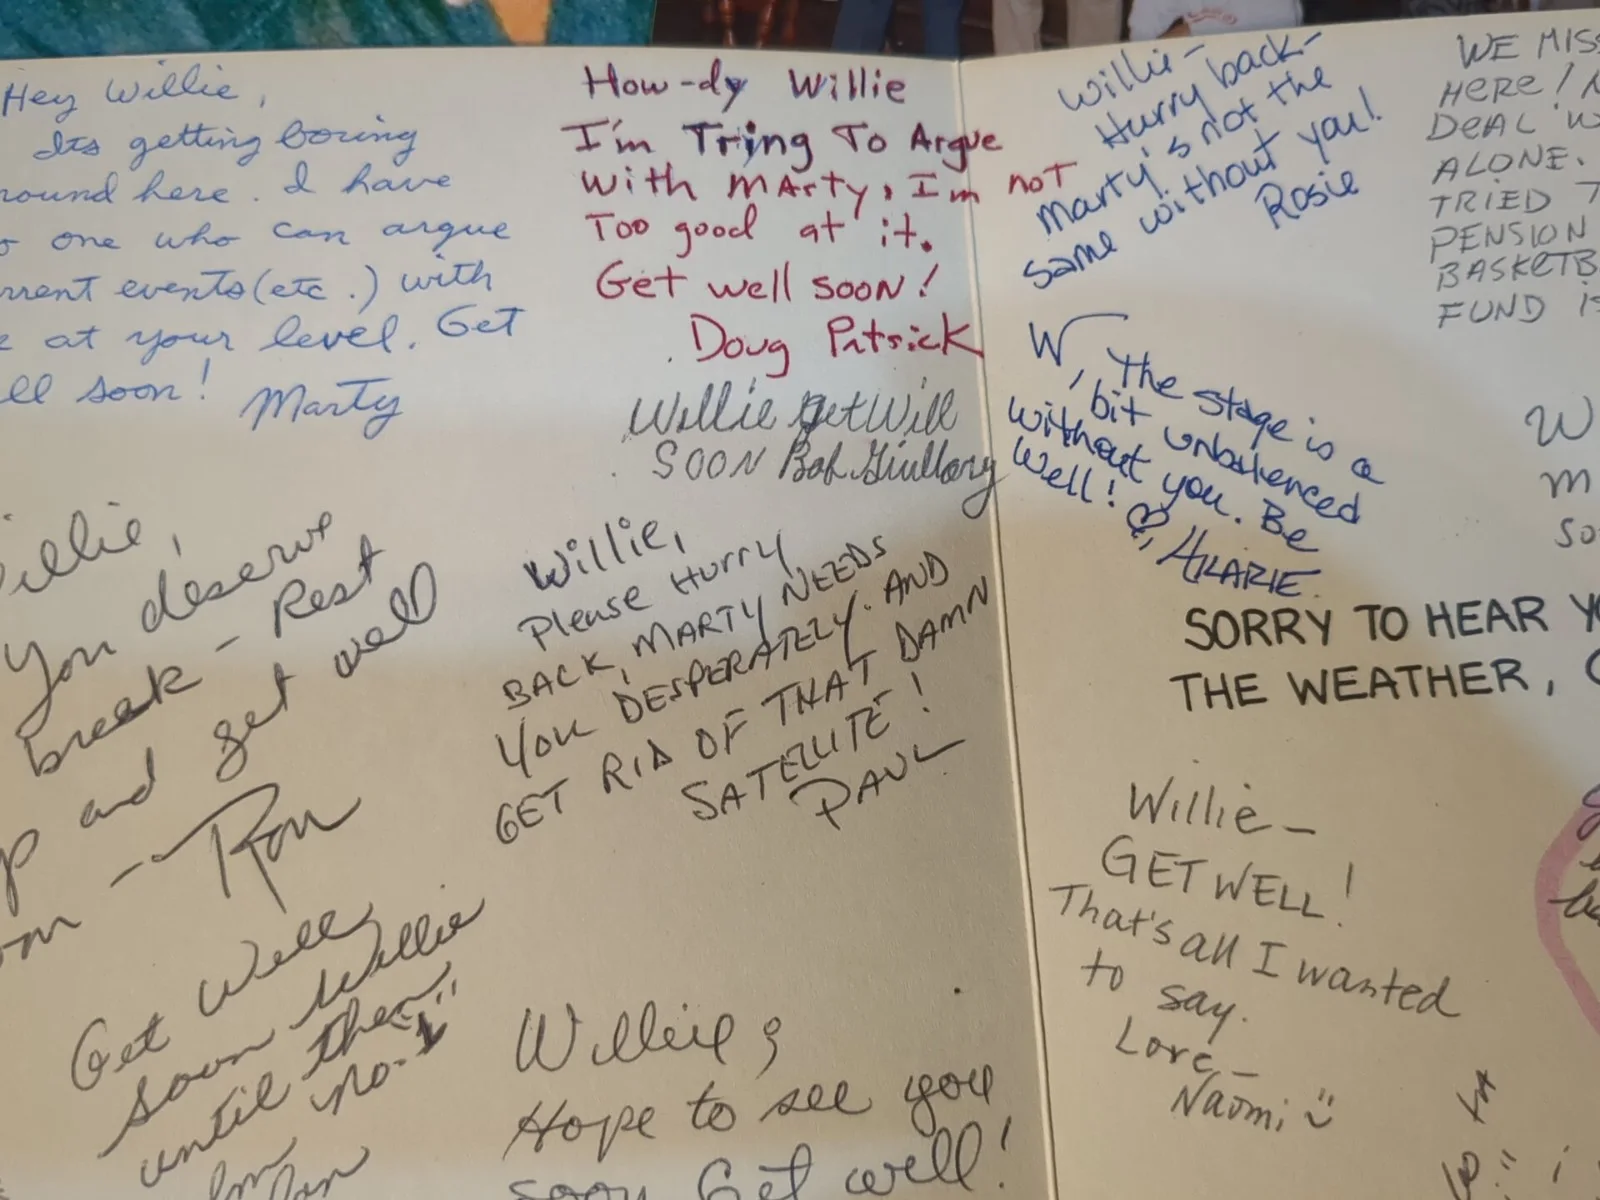 Hey Willie,
Its getting boring
round here. I have
one who can argue
rrent events (etc.) with
at your level. Get
ll soon!
Marty
How-dy Willie
I'm Tring To Argue
with MArty, I'm not
Too good at it.
Get well soon!
Doug Patrick
Willie get Will
SOON Bob
Willie -
Hurry back -
Marty's not the
same without you!
Rosie
WE MIS
HERE!
DEAL W
ALONE.
TRIED T
PENSION
BASKETB
FUND IS
W, The stage is a
bit unbalenced
without you. Be
Well! ♡, HILARIE
W
m
so
illie,
You deserve
break - Rest
up and get well
- Ron
Willie,
Please Hurry
BACK, MARTY NEEDS
YOU DESPERATELY. AND
GET RID OF THAT DAMN
SATELLITE!
PAUL
SORRY TO HEAR Y
THE WEATHER,
Willie -
GET WELL!
That's all I wanted
to say.
Love -
Naomi
Get Well
soon Willie
until then
Willie,
Hope to see you
soon Get well!